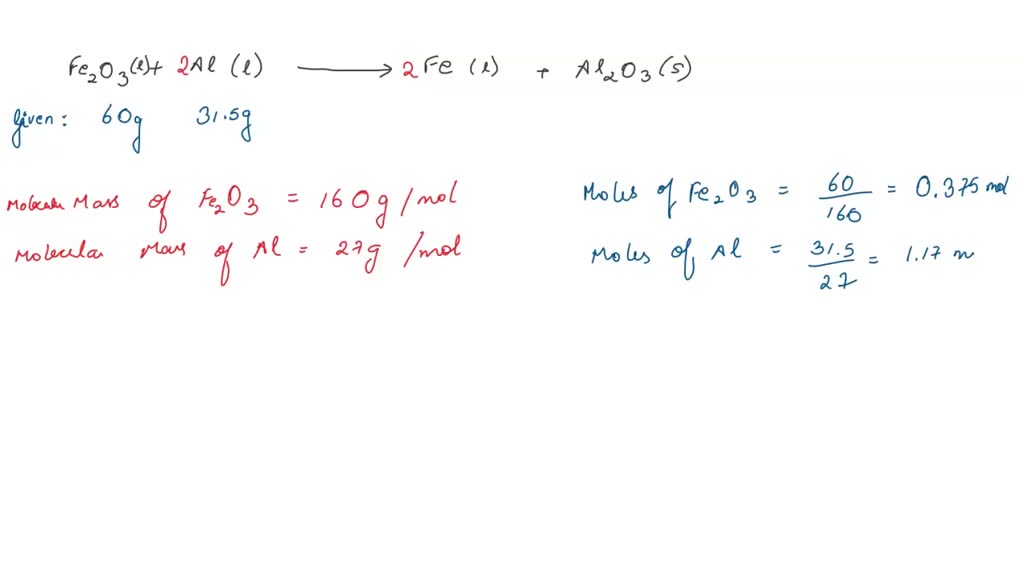 Fe₂O₃(l) + 2Al (l) ⟶ 2 Fe (l) + Al₂O₃ (s)
Given: 60g 31.5g
Molecular Mass of Fe₂O₃ = 160 g/mol
Molecular Mass of Al = 27g /mol
Moles of Fe₂O₃ = 60/160 = 0.375 mol
Moles of Al = 31.5/27 = 1.17 m